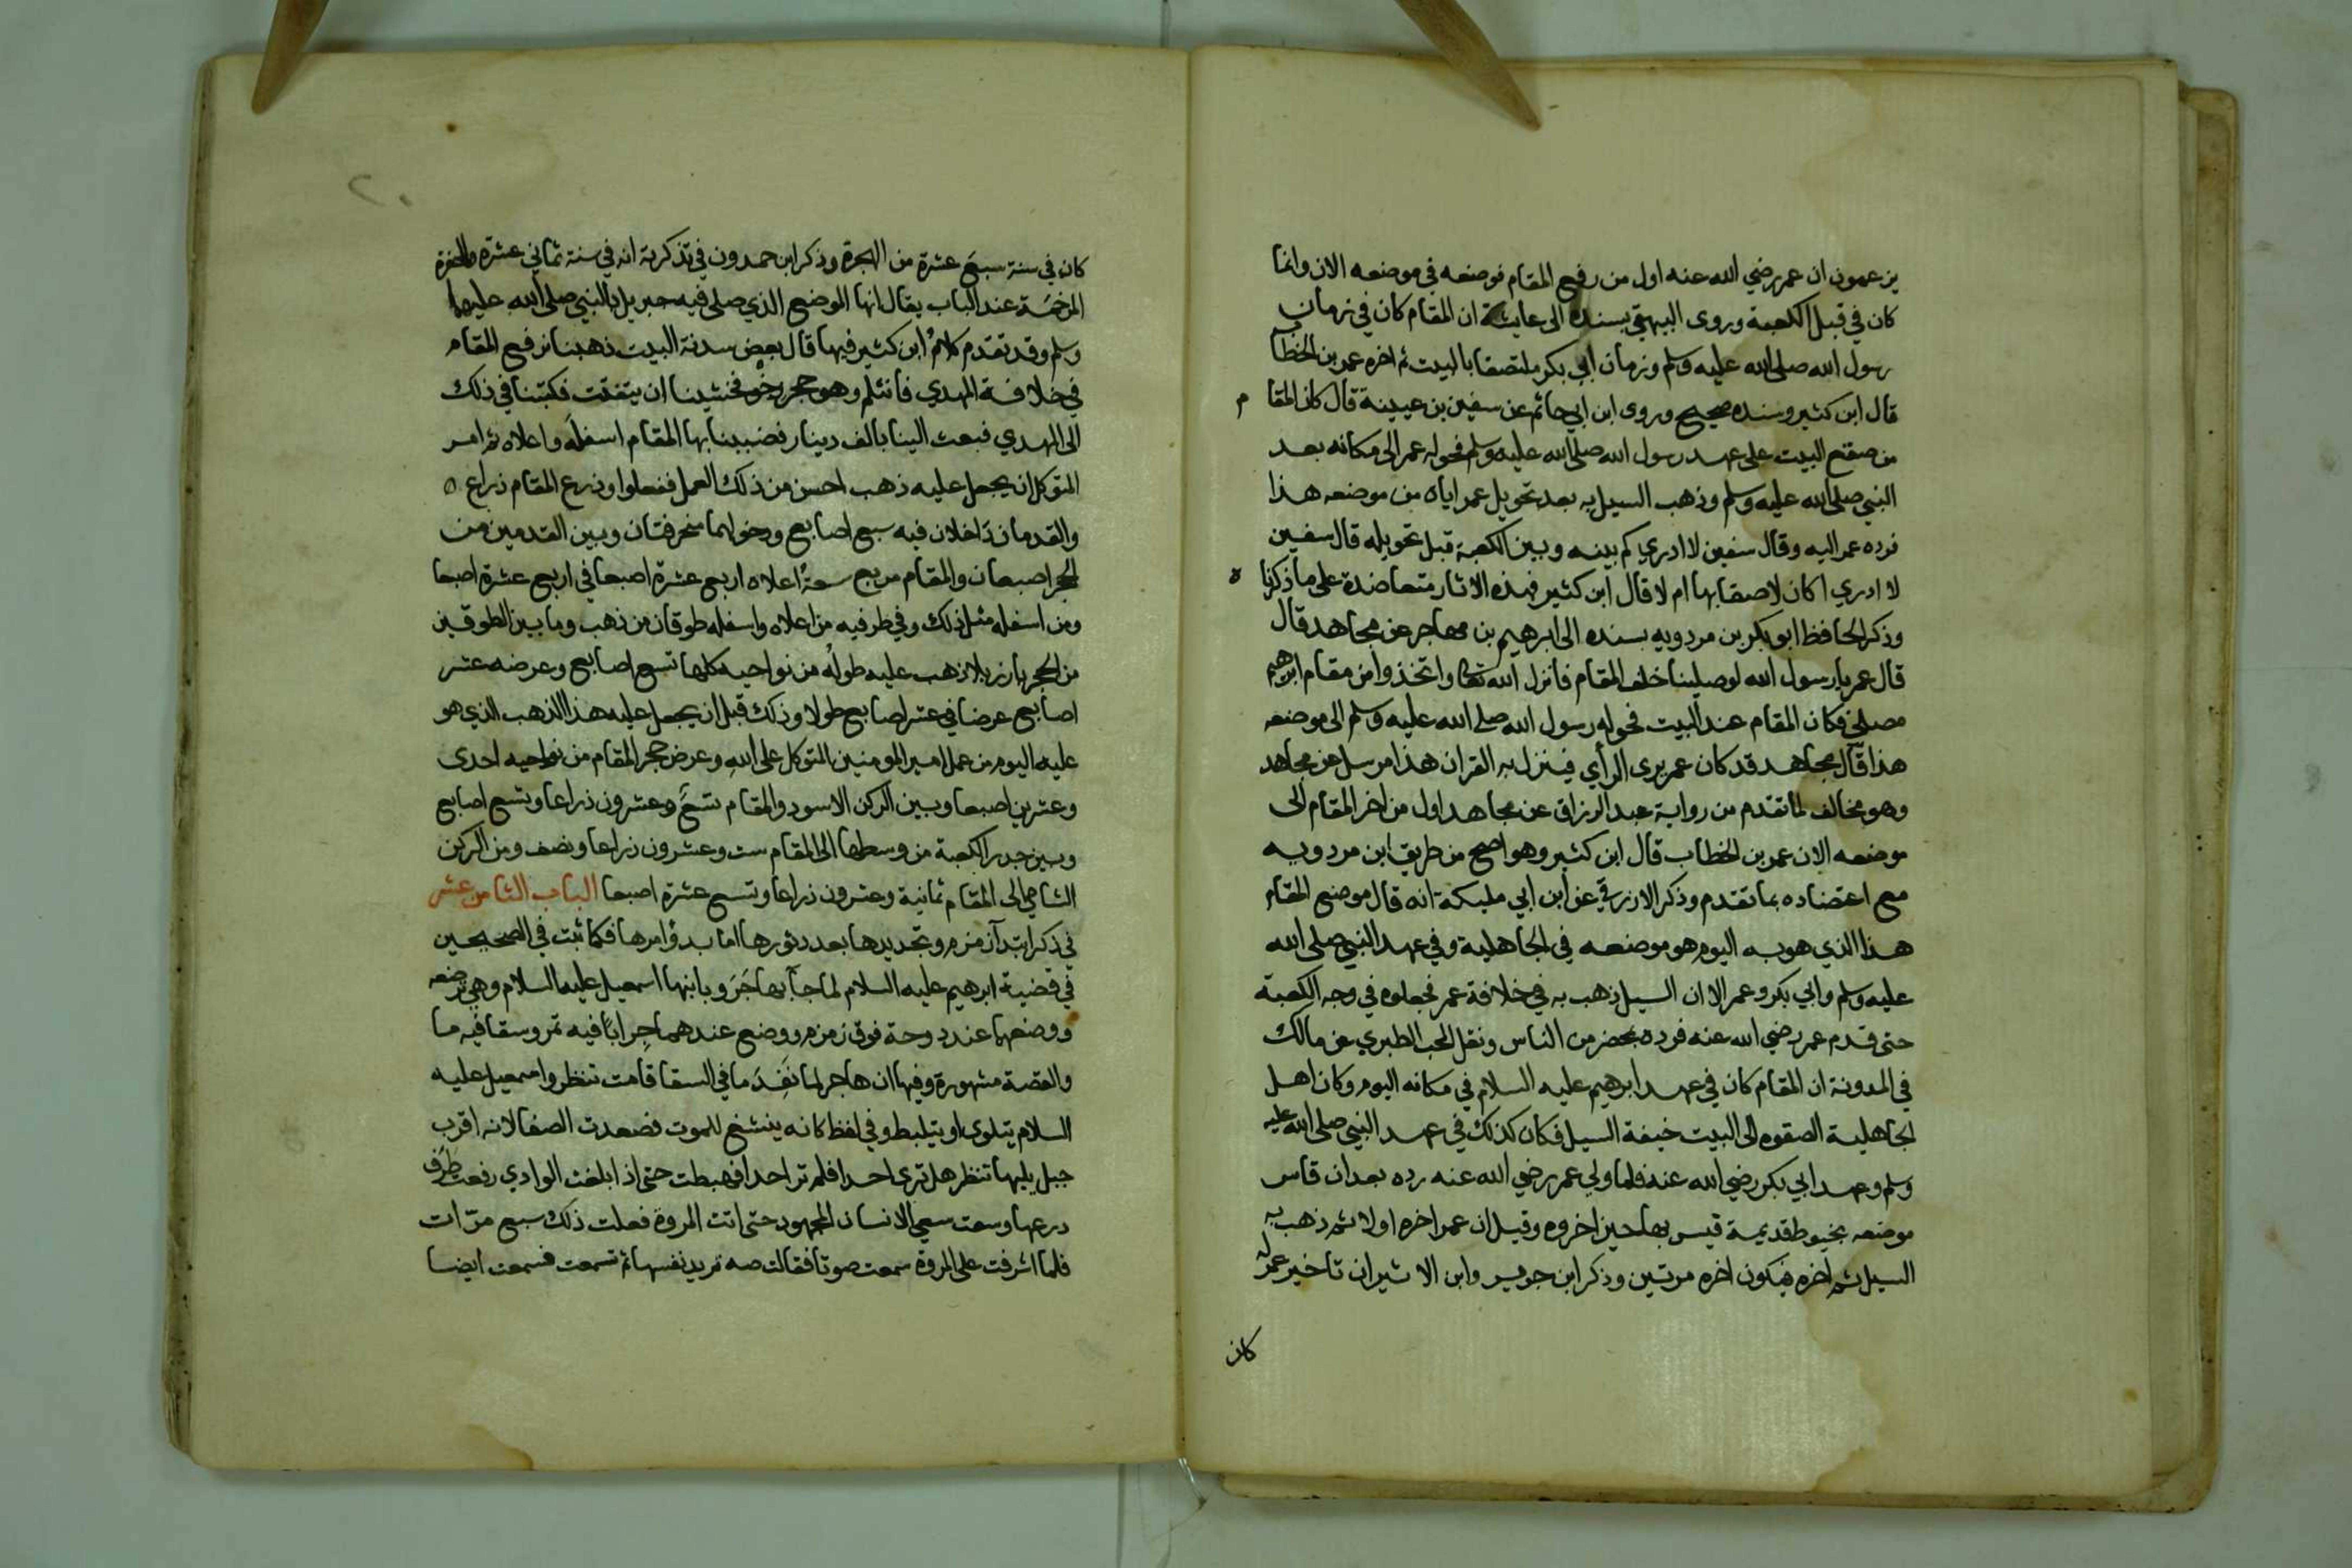 يزعمون ان عمر رضي الله عنه اول من رفع المقام فوضعه في موضعه الان وانما
كان في قبل الكعبة وروى البيهقي بسنده الى عايشة ان المقام كان في زمان
رسول الله صلى الله عليه وسلم وزمان ابي بكر ملتصقا بالبيت ثم اخره عمر بن الخطاب
قال ابن كثير وسنده صحيح وروى ابن ابي حاتم عن سفين بن عيينة قال كان المقا م
من صقع البيت على عهد رسول الله صلى الله عليه وسلم فحوله عمر الى مكانه بعد
النبي صلى الله عليه وسلم وذهب السيل به بعد تحويل عمر اياه من موضعه هذا
فرده عمر اليه وقال سفين لا ادري كم بينه وبين الكعبة قبل تحويله قال سفين
لا ادري اكان لاصقا بها ام لا قال ابن كثير فهذه الاثار متعاضدة على ما ذكرنا ه
وذكر الحافظ ابو بكر بن مردويه بسنده الى ابرهيم بن مهاجر عن مجاهد قال
قال عمر يا رسول الله لو صلينا خلف المقام فانزل الله تعالى واتخذوا من مقام ابرهيم
مصلى فكان المقام عند البيت فحوله رسول الله صلى الله عليه وسلم الى موضعه
هذا قال مجاهد قد كان عمر يرى الرأي فينزل به القران هذا مرسل عن مجاهد
وهو مخالف لما تقدم من رواية عبد الرزاق عن مجاهد اول من اخر المقام الى
موضعه الان عمر بن الخطاب قال ابن كثير وهو اصح من طريق ابن مردويه
مع اعتضاده بما تقدم وذكر الازرقي عن ابن ابي مليكة انه قال موضع المقام
هذا الذي هو به اليوم هو موضعه في الجاهلية وفي عهد النبي صلى الله
عليه وسلم وابي بكر وعمر الا ان السيل ذهب به في خلافة عمر فجعلوه في وجه الكعبة
حتى قدم عمر رضي الله عنه فرده بمحضر من الناس ونقل المحب الطبري عن مالك
في المدونة ان المقام كان في عهد ابرهيم عليه السلام في مكانه اليوم وكان اهل
الجاهلية الصقوه الى البيت خيفة السيل فكان كذلك في عهد النبي صلى الله عليه
وسلم وعهد ابي بكر رضي الله عنه فلما ولي عمر رضي الله عنه رده بعد ان قاس
موضعه بخيوط قديمة قيس بها حين اخروه وقيل ان عمر اخره اولا ثم ذهب به
السيل ثم اخره فيكون اخره مرتين وذكر ابن جرير وابن الاثير ان تاخير عمر له
كان
٢٠
كان في سنة سبع عشرة من الهجرة وذكر ابن حمدون في تذكرته انه في سنة ثماني عشرة والحفرة
المرخمة عند الباب يقال انها الموضع الذي صلى فيه جبريل بالنبي صلى الله عليهما
وسلم وقد تقدم كلام ابن كثير فيها قال بعض سدنة البيت ذهبنا نرفع المقام
في خلافة المهدي فانثلم وهو حجر رخو فخشينا ان يتفتت فكتبنا في ذلك
الى المهدي فبعث الينا بالف دينار فضببنا بها المقام اسفله واعلاه ثم امر
المتوكل ان يجعل عليه ذهب احسن من ذلك العمل ففعلوا وذرع المقام ذراع ه
والقدمان داخلان فيه سبع اصابع ودخولهما منحرفتان وبين القدمين من
الحجر اصبعان والمقام مربع سعة اعلاه اربع عشرة اصبعا في اربع عشرة اصبعا
ومن اسفله مثل ذلك وفي طرفيه من اعلاه واسفله طوقان من ذهب وما بين الطوقين
من الحجر بارز بلا ذهب عليه طوله من نواحيه كلها تسع اصابع وعرضه عشر
اصابع عرضا في عشر اصابع طولا وذلك قبل ان يجعل عليه هذا الذهب الذي هو
عليه اليوم من عمل امير المومنين المتوكل على الله وعرض حجر المقام من نواحيه احدى
وعشرين اصبعا وبين الركن الاسود والمقام تسع وعشرون ذراعا وتسع اصابع
وبين جدر الكعبة من وسطها الى المقام ست وعشرون ذراعا ونصف ومن الركن
الشامي الى المقام ثمانية وعشرون ذراعا وتسع عشرة اصبعا الباب الثامن عشر
في ذكر ابتدآ زمزم وتجديدها بعد دثورها اما بدؤ امرها فكما ثبت في الصحيحين
في قضية ابرهيم عليه السلام لما جآ بهاجَرَ وبابنها اسمعيل عليه السلام وهي ترضعه
ووضعهما عند دوحة فوق زمزم ووضع عندهما جِراباً فيه تمر وسقا فيه ما
والقصة مشهورة وفيها ان هاجر لما نَفِدَ ما في السقا قامت تنظر واسمعيل عليه
السلام يتلوى او يتلبط وفي لفظ كانه ينشغ للموت فصعدت الصفا لانه اقرب
جبل يليها تنظر هل ترى احدا فلم تر احدا فهبطت حتى اذا بلغت الوادي رفعت طرف
درعها وسعت سعي الانسان المجهود حتى اتت المروة فعلت ذلك سبع مرّات
فلما اشرفت على المروة سمعت صوتا فقالت صه تريد نفسها ثم تسمعت فسمعت ايضا